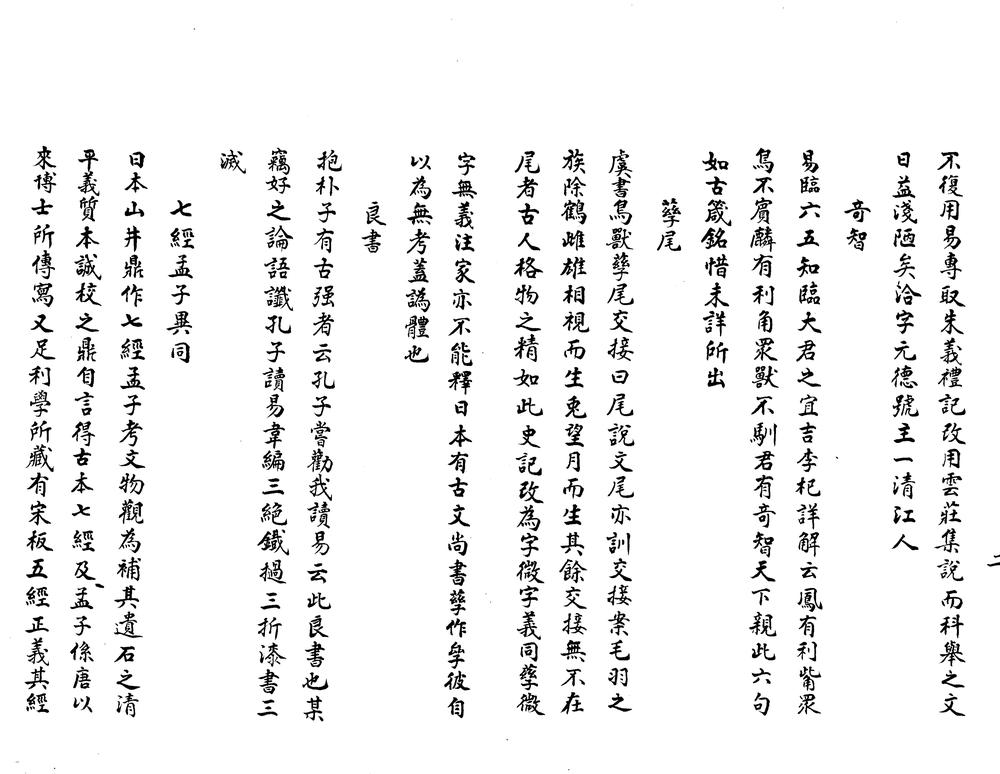 不復用易專取朱義禮記改用雲莊集說而科舉之文
日益淺陋矣洽字元德號主一清江人
奇智
易臨六五知臨大君之宜吉李杞詳解云鳳有利觜眾
鳥不賓麟有利角眾獸不馴君有奇智天下親此六句
如古箴銘惜未詳所出
孶尾
虞書鳥獸孶尾交接曰尾說文尾亦訓交接案毛羽之
族除鶴雌雄相視而生兎望月而生其餘交接無不在
尾者古人格物之精如此史記改為字微字義同孶微
字無義注家亦不能釋日本有古文尚書孶作孚彼自
以為無考蓋譌體也
良書
抱朴子有古强者云孔子嘗勸我讀易云此良書也某
竊好之論語讖孔子讀易韋編三絕鐵擿三折漆書三
滅
七經孟子異同
日本山井鼎作七經孟子考文物觀為補其遺石之清
平義質本誠校之鼎自言得古本七經及孟子係唐以
來博士所傳寫又足利學所藏有宋板五經正義其經
二